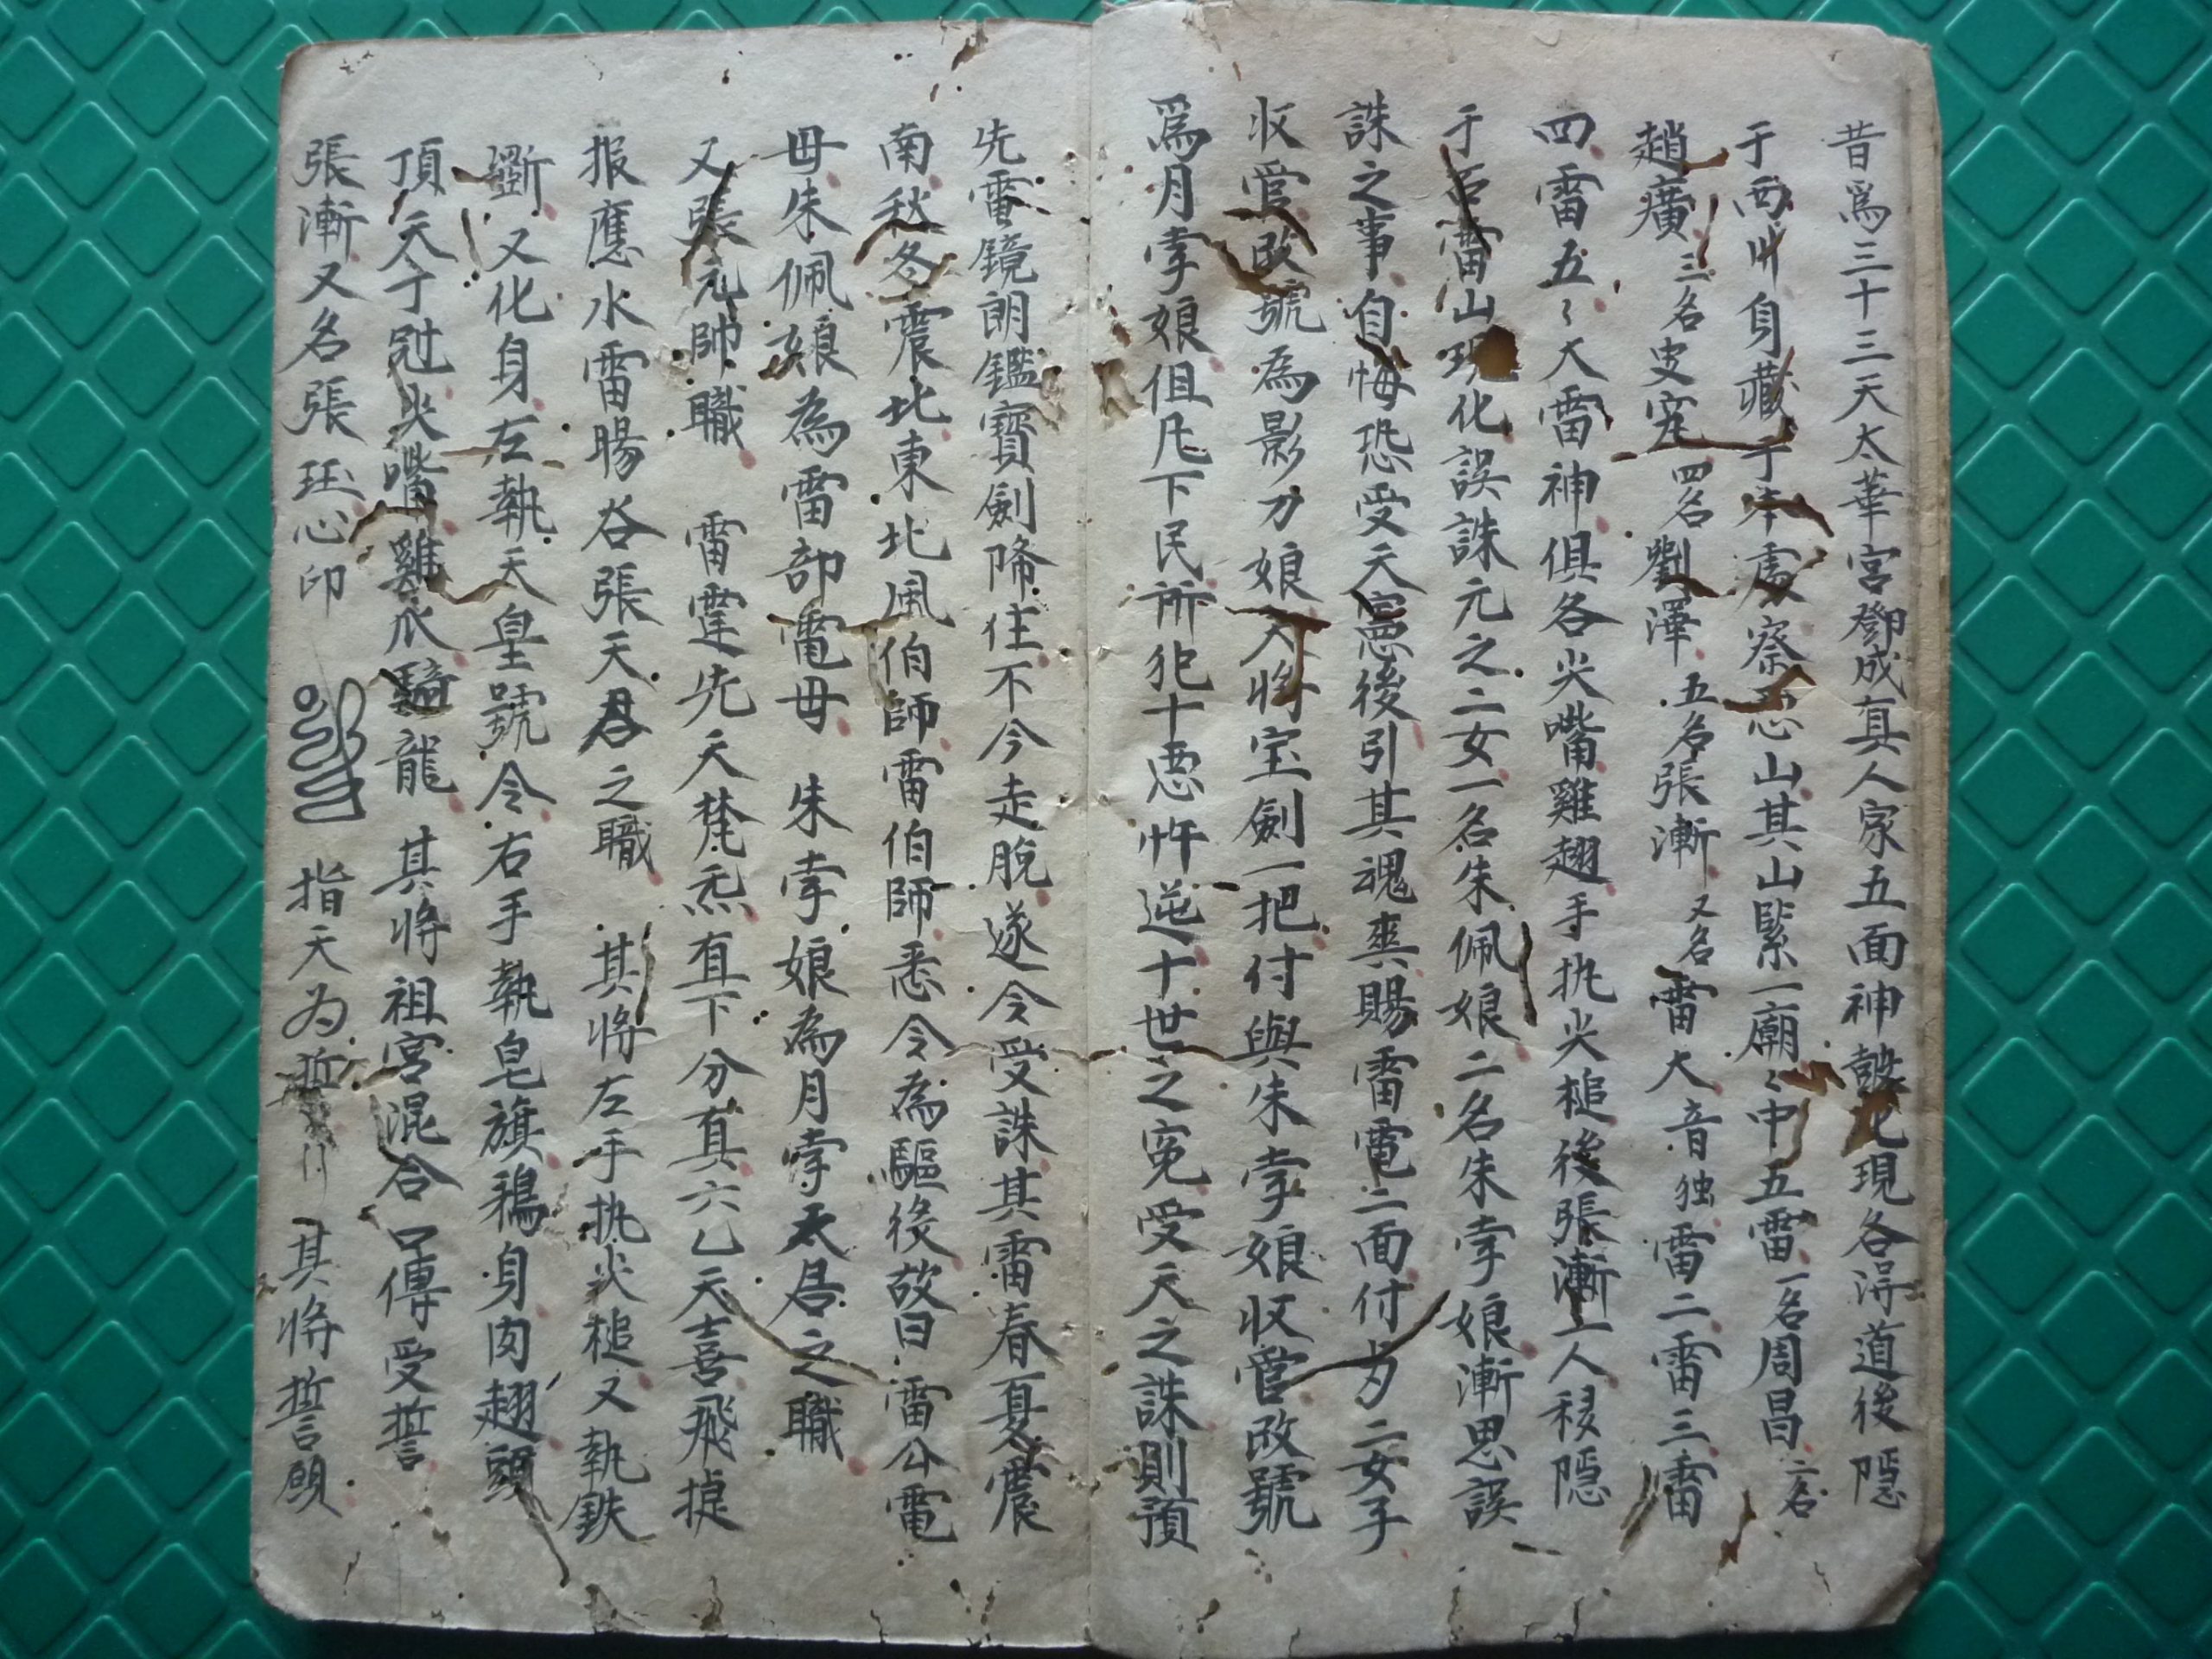 昔爲三十三天太華宮鄧成真人家五面神鼓化現各得道後隱
于西川自藏于本處察忍山其山緊一廟〻中五雷一名周昌二名
趙廣三名史定四名劉澤五名張漸又名雷大音独雷二雷三雷
四雷五〻大雷神俱各尖嘴雞翅手执尖槌後張漸一人移隱
于呂雷山現化誤誅元之二女一名朱佩娘二名朱孛娘漸思誤
誅之事自悔恐受天憲後引其魂爽賜雷電二面付为二女子
収管改號為影刀娘天將宝劍一把付與朱孛娘収管改號
爲月孛娘但凡下民所犯十惡忤逆十世之冤受天之誅則預
先電鏡朗鑑寶劍降住不令走脫遂令受誅其雷春夏震
南秋冬震北東北風伯師雷伯師悉令為驅後故曰雷公電
母朱佩娘為雷部電母 朱孛娘為月孛太君之職
又張元帥職 雷霆先天梵炁直下分真六乙天喜飛捷
报應水雷暘谷張天君之職 其將左手执尖槌又執鉄
斵又化身左執天皇號令右手執皂旗鴉身肉翅頭
頂天丁冠尖嘴雞爪騎龍 其將祖宮混合口傳受誓
張漸又名張珏心印 指天为誓 其將誓願